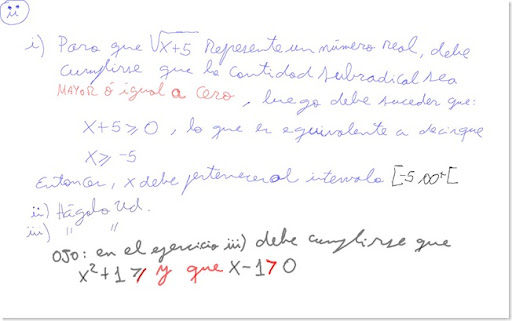 i) Para que √x+5 Represente un número real, debe
cumplirse que la cantidad subradical sea
MAYOR ó igual a cero, luego debe suceder que:
x+5⩾0, lo que es equivalente a decir que
x⩾-5
Entonces, x debe pertenecer al intervalo [-5,∞+[
ii) Hágalo Ud.
iii) " "
OJO: en el ejercicio iii) debe cumplirse que
x²+1⩾ y que x-1>0